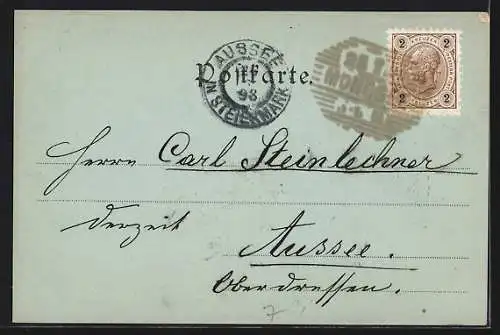 AUSSEE
98
IN STEIERMARK
2 2
2 2
Postkarte.
Herrn Carl Steinlechner
derzeit
Aussee.
Oberdressen.
7